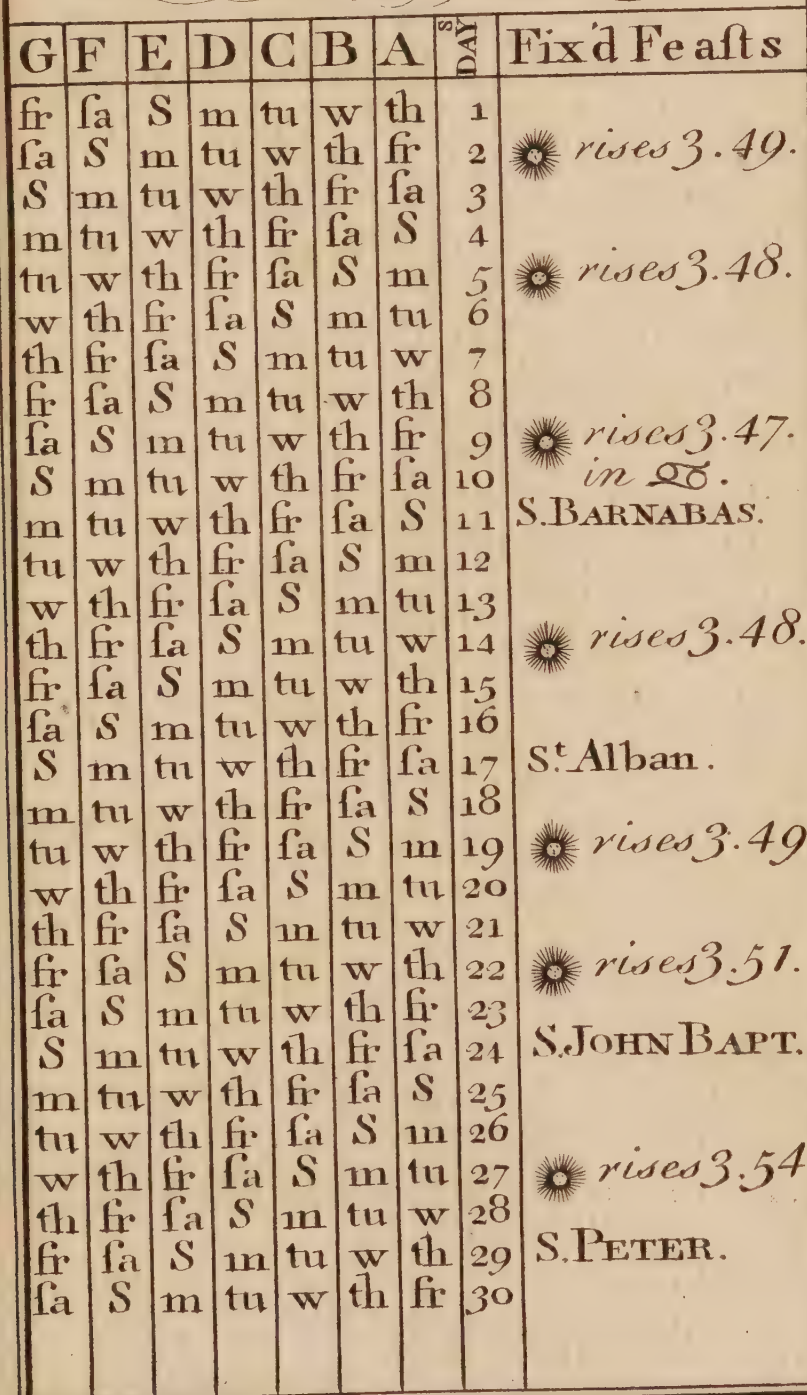 G F E D C B A DAYS Fix'd Feaſts
fr ſa S m tu w th 1
ſa S m tu w th fr 2 rises 3.49.
S m tu w th fr ſa 3
m tu w th fr ſa S 4
tu w th fr ſa S m 5 rises 3.48.
w th fr ſa S m tu 6
th fr ſa S m tu w 7
fr ſa S m tu w th 8
ſa S m tu w th fr 9 rises 3.47.
S m tu w th fr ſa 10 in ♋.
m tu w th fr ſa S 11 S. BARNABAS.
tu w th fr ſa S m 12
w th fr ſa S m tu 13
th fr ſa S m tu w 14 rises 3.48.
fr ſa S m tu w th 15
ſa S m tu w th fr 16
S m tu w th fr ſa 17 St. Alban.
m tu w th fr ſa S 18
tu w th fr ſa S m 19 rises 3.49
w th fr ſa S m tu 20
th fr ſa S m tu w 21
fr ſa S m tu w th 22 rises 3.51.
ſa S m tu w th fr 23
S m tu w th fr ſa 24 S. JOHN BAPT.
m tu w th fr ſa S 25
tu w th fr ſa S m 26
w th fr ſa S m tu 27 rises 3.54
th fr ſa S m tu w 28
fr ſa S m tu w th 29 S. PETER.
ſa S m tu w th fr 30